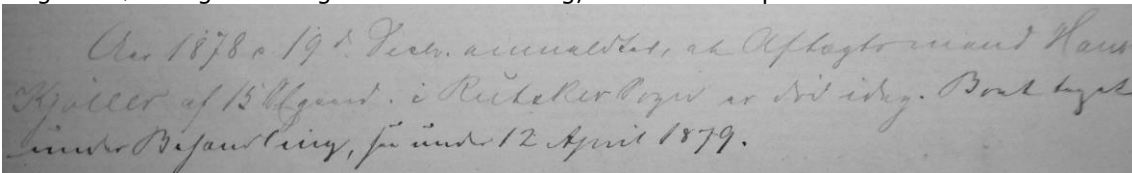 Aar 1878 d. 19d Decbr. anmeldtes, at Aftægtsmand Hans
Kjøller af 15 Slgaard i Rutsker Sogn er død idag. Boet taget
under Behandling, see under 12 April 1879.